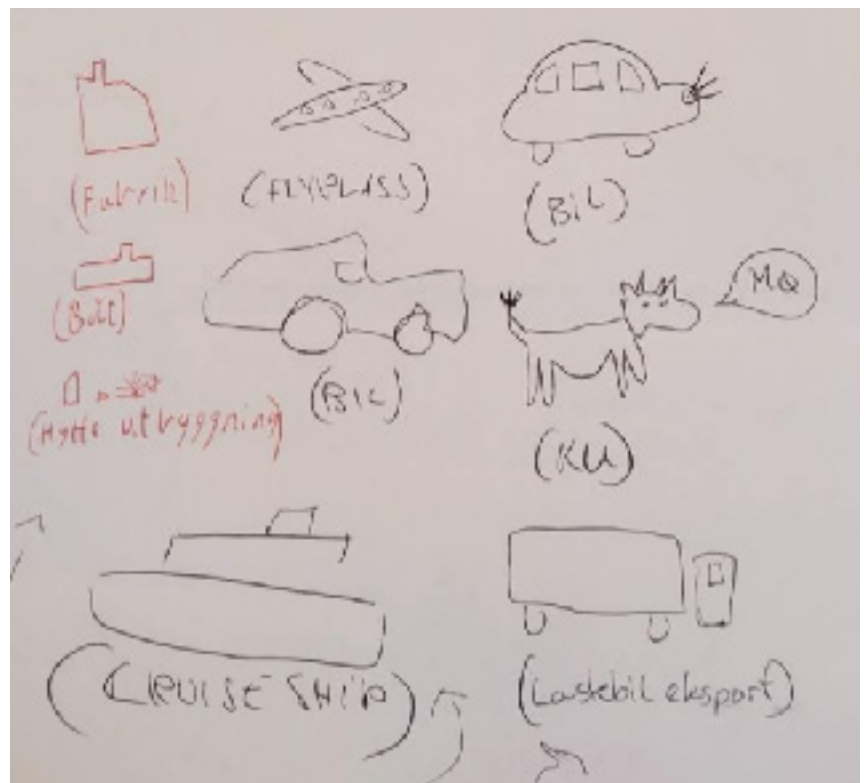 (Fabrik)
(FLYPLASS)
(BiL)
(Båt)
MØ
(BIL)
(Hytte utbyggning)
(KU)
(CRUISE SHIP)
(Lastebil eksport)